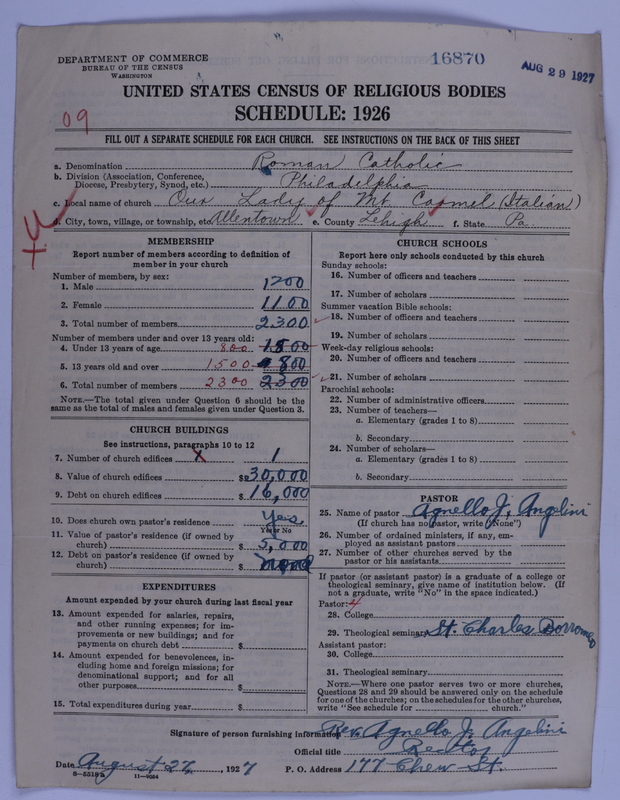 DEPARTMENT OF COMMERCE
BUREAU OF THE CENSUS
WASHINGTON
16870
AUG 29 1927
UNITED STATES CENSUS OF RELIGIOUS BODIES
SCHEDULE: 1926
09
FILL OUT A SEPARATE SCHEDULE FOR EACH CHURCH. SEE INSTRUCTIONS ON THE BACK OF THIS SHEET
a. Denomination Roman Catholic
b. Division (Association, Conference, Diocese, Presbytery, Synod, etc.) Philadelphia
c. Local name of church Our Lady of Mt Carmel (Italian)
d. City, town, village, or township, etc. Allentown e. County Lehigh f. State Pa.
MEMBERSHIP
Report number of members according to definition of member in your church
Number of members, by sex:
1. Male 1200
2. Female 1100
3. Total number of members 2300
Number of members under and over 13 years old:
4. Under 13 years of age 800 1500
5. 13 years old and over 1500 800
6. Total number of members 2300 2300
NOTE.—The total given under Question 6 should be the same as the total of males and females given under Question 3.
CHURCH BUILDINGS
See instructions, paragraphs 10 to 12
7. Number of church edifices 1
8. Value of church edifices $ 30,000
9. Debt on church edifices $ 16,000
10. Does church own pastor's residence Yes.
Yes or No
11. Value of pastor's residence (if owned by church) $ 5,000
12. Debt on pastor's residence (if owned by church) $ none
EXPENDITURES
Amount expended by your church during last fiscal year
13. Amount expended for salaries, repairs, and other running expenses; for improvements or new buildings; and for payments on church debt $
14. Amount expended for benevolences, including home and foreign missions; for denominational support; and for all other purposes $
15. Total expenditures during year $
CHURCH SCHOOLS
Report here only schools conducted by this church
Sunday schools:
16. Number of officers and teachers
17. Number of scholars
Summer vacation Bible schools:
18. Number of officers and teachers
19. Number of scholars
Week-day religious schools:
20. Number of officers and teachers
21. Number of scholars
Parochial schools:
22. Number of administrative officers
23. Number of teachers—
a. Elementary (grades 1 to 8)
b. Secondary
24. Number of scholars—
a. Elementary (grades 1 to 8)
b. Secondary
PASTOR
25. Name of pastor Agnello J. Angelini
(If church has no pastor, write "None")
26. Number of ordained ministers, if any, employed as assistant pastors
27. Number of other churches served by the pastor or his assistants
If pastor (or assistant pastor) is a graduate of a college or theological seminary, give name of institution below. (If not a graduate, write "No" in the space indicated.)
Pastor: 4
28. College
29. Theological seminary St. Charles Borromeo
Assistant pastor:
30. College
31. Theological seminary
NOTE.—Where one pastor serves two or more churches, Questions 28 and 29 should be answered only on the schedule for one of the churches; on the schedules for the other churches, write "See schedule for church."
Signature of person furnishing information Rev. Agnello J. Angelini
Official title Rector
Date August 27, 1927 P. O. Address 177 Chew St.
8—5518a 11—9064